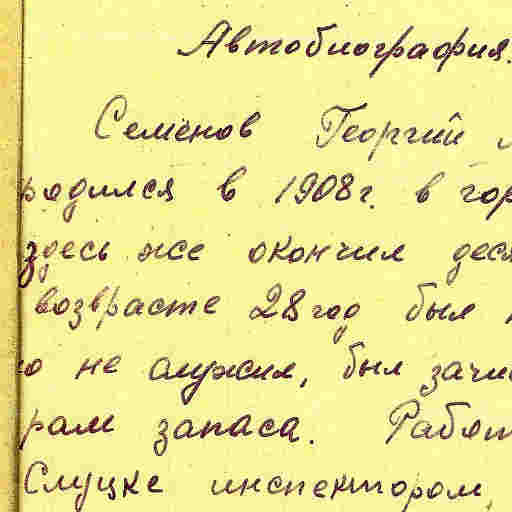 Автобиография.
Семёнов Георгий
родился в 1908г. в гор
здесь же окончил деся
возврасте 28 год был
ю не служил, был зачис
рам запаса. Работ
Слуцке инспектором,